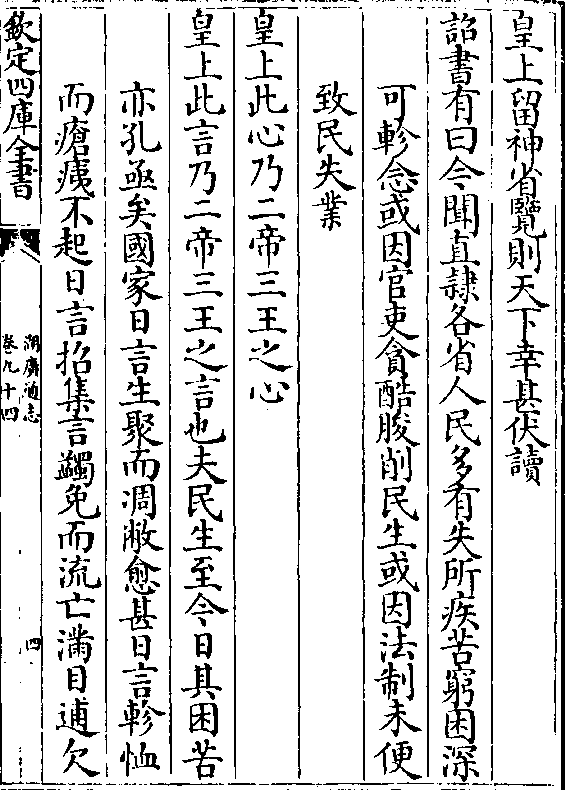 皇上留神省覽則天下幸甚伏讀
詔書有曰今聞直隷各省人民多有失所疾苦窮困深
可軫念或因官吏貪酷朘削民生或因法制未便
致民失業
皇上此心乃二帝三王之心
皇上此言乃二帝三王之言也夫民生至今日其困苦
亦孔亟矣國家日言生聚而凋敝愈甚日言軫恤
而瘡痍不起日言招集言蠲免而流亡滿目逋欠
欽定四庫全書
湖廣通志
卷九十四
四